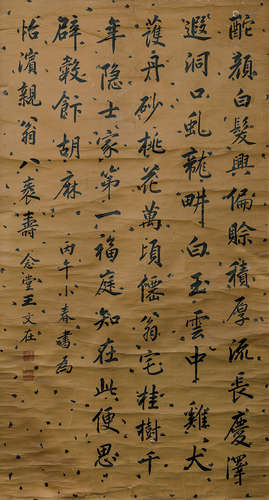 酡顏白髮興偏賒積厚流長慶澤
遐洞口虬龍畔白玉雲中雞犬
護丹砂桃花萬頃僊翁宅桂樹千
年隱士家第一福庭知在此便思
辟穀飰胡麻 丙午小春書為
怡濱親翁八袠壽 念堂王文在